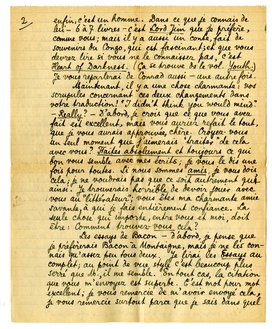 2
enfin, c'est un homme. Dans ce que je connais de
lui - 6 à 7 livres - c'est Lord Jim que je préfère,
comme vous; mais il y a aussi un conte, fait de
souvenirs du Congo, qui est fascinant, et que vous
devrez lire si vous ne le connaissez pas, c'est
Heart of Darkness. (Ça se trouve ds le vol. Youth.)
Je vous reparlerai de Conrad aussi - une autre fois.
Maintenant, il y a une chose charmante: vos
scrupules concernant ces deux changements dans
votre traduction! "I didn't think you would mind"
- Really? - D'abord, je crois que ce que vous avez
fait est excellent, mais vous auriez refait le tout,
que je vous aurais approuvée, chère. Croyez-vous
un seul moment que j'aimerais "braire" de cela
avec vous? Faites absolument et toujours ce qui
bon vous semble avec mes écrits; je vous le dis une
fois pour toutes. Si nous sommes amis, je vous dois
cela; je ne voudrais pas que ce soit autrement puis
ainsi. Je trouverais horrible de devoir jouer avec
vous au "littérateur"; vous êtes ma charmante amie
avant, à qui je fais entièrement confiance. La
seule chose qui importe, entre vous et moi, doit
être: Comment trouvez-vous cela?
Les essays de Bacon - D'abord, je pense que
je préférerais Bacon à Montaigne, mais je ne les con-
nais m'assez peu tous deux. Je lirai les Essays au
complet; au point de vue style, c'est beaucoup plus
serré que M., il me semble. En tout cas, la citation
que vous m'envoyez est superbe. C'est mot pour mot
excellent; je vous remercie de m'avoir envoyé cela,
je vous remercie surtout parce que je sais dans quel